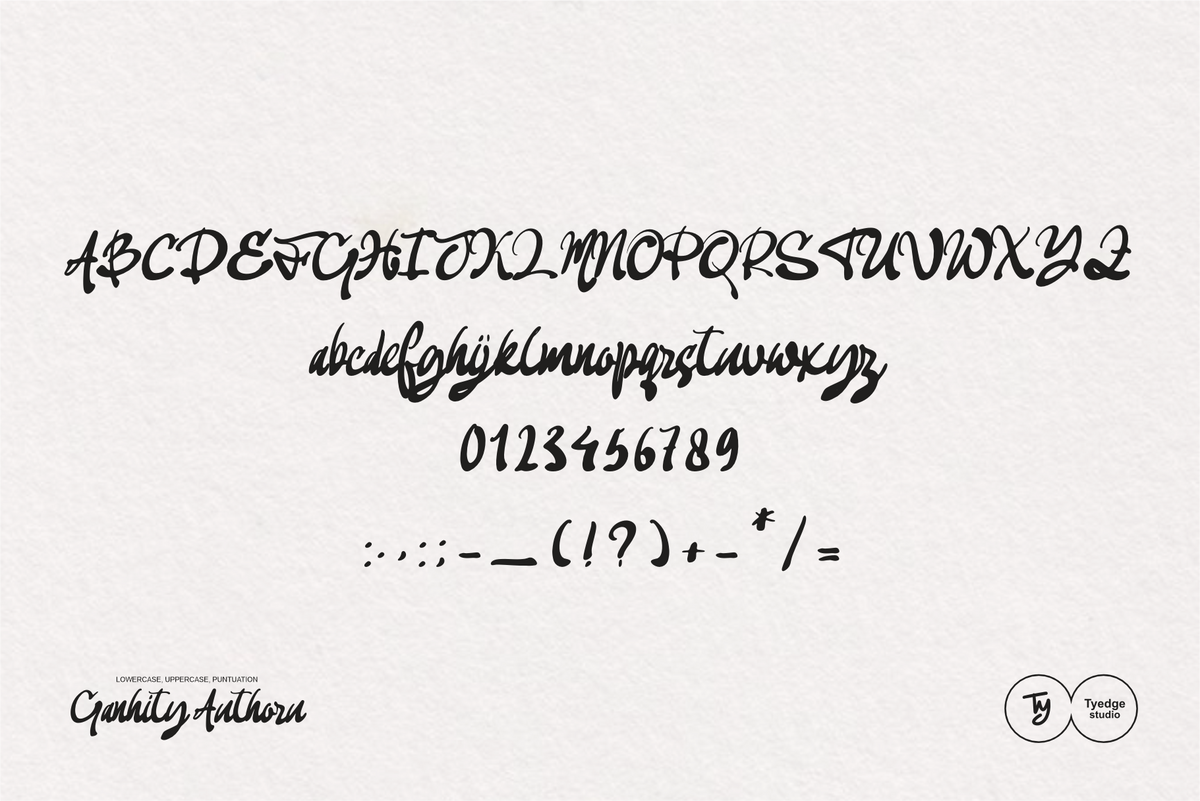 ABCDEFGHIJKLMNOPQRSTUVWXYZ
abcdefghijklmnopqrstuvwxyz
0123456789
:.,:;-_(!?)+-*/=
LOWERCASE, UPPERCASE, PUNTUATION
Ganhity Anthorn
Ty
Tyedge
studio